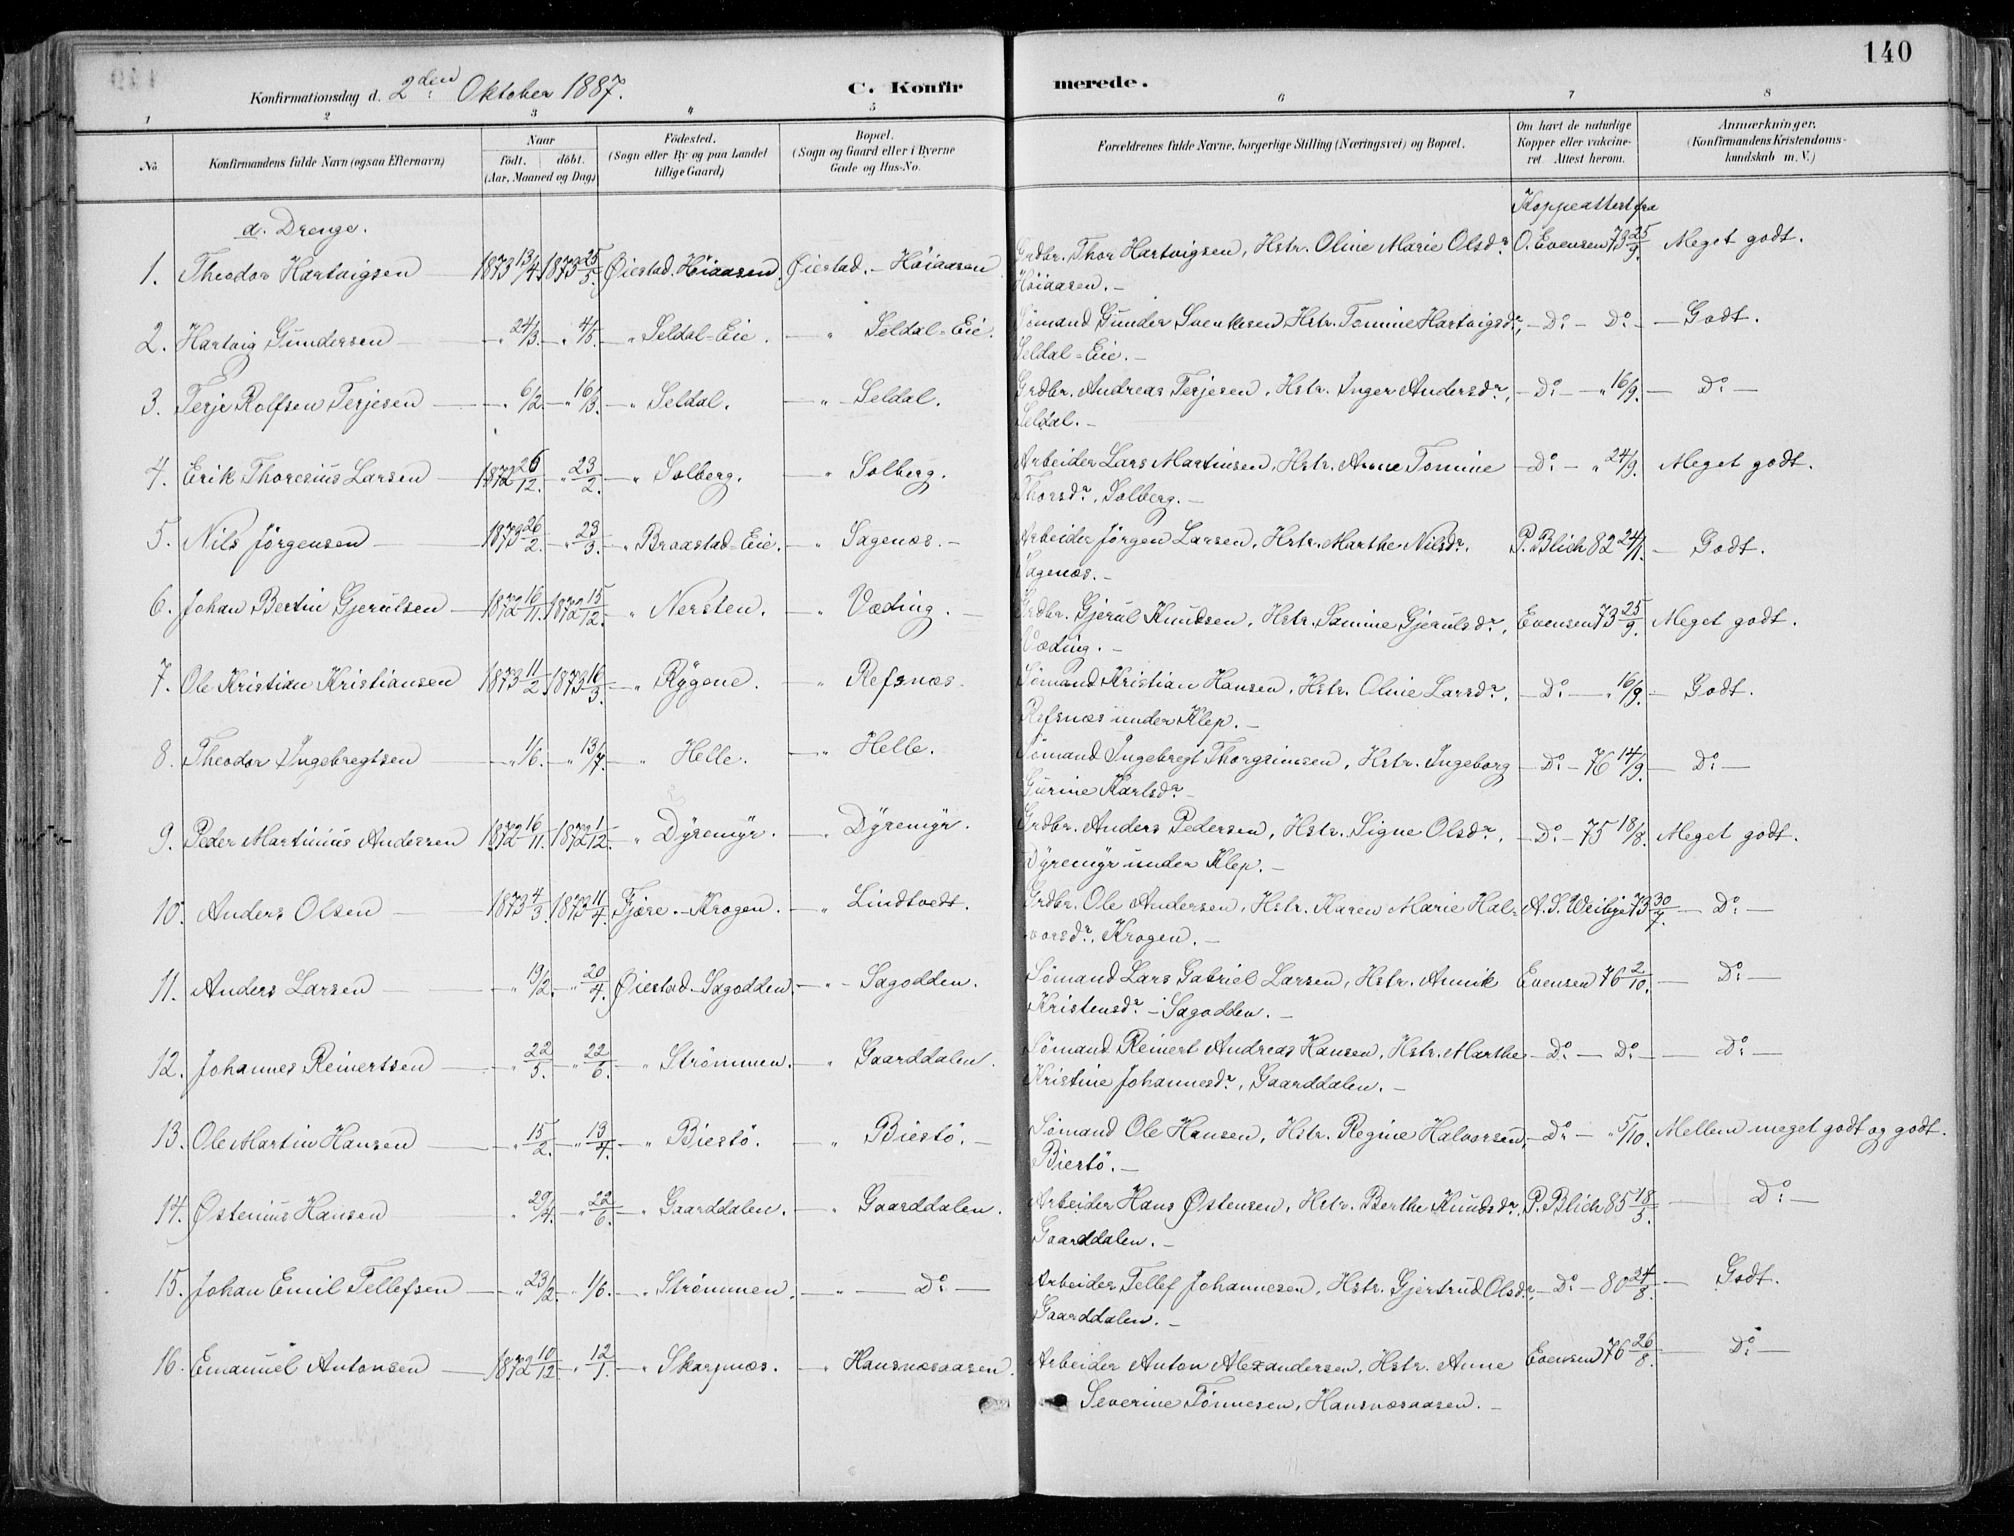 140
Konfirmationsdag d. 2den Oktober 1887.
C. Konfirmerede.
1 2 3 " 5 6 7 8
No. Konfirmandens fulde Navn (ogsaa Efternavn) Naar født. døbt. (Aar, Maaned og Dag) Fødested. (Sogn eller By og paa Landet tillige Gaard) Bopæl. (Sogn og Gaard eller i Byerne Gade og Hus-No. Forældrenes fulde Navne, borgerlige Stilling (Næringsvei) og Bopæl. Om havt de naturlige Kopper eller vakcineret. Attest herom. Anmærkninger. (Konfirmandens Kristendomskundskab m. V.)
a. Drenge. Koppeattest fra
1. Theodor Hartvigsen 1873 13/4. 1873 25/5. Øiestad. Höiaasen. Øiestad. - Höiaasen Grdbr. Thor Hartvigsen, Hstr. Oline Marie Olsdr. O. Evensen 73 25/9. Meget godt.
Höiaasen. -
2. Hartvig Gundersen — " 24/3. " 4/5. — " Seldal-Eie. — " Seldal-Eie. Sömand Gunder Svenksen Hstr. Tomine Hartvigsdr. — Do — Do — Godt.
Seldal-Eie. -
3. Terje Rolfsen Terjesen — " 6/2. — " 16/3. — " Seldal. — " Seldal. Grdbr. Andreas Terjesen, Hstr. Inger Andersdr. — Do — " 16/9. — Do —
Seldal. -
4. Erik Thoresius Larsen — 1872 26/12. — " 23/2. — " Solberg. — " Solberg. Arbeider Lars Martinsen, Hstr. Anne Tomine — Do — " 24/9. Meget godt.
Thorsdr., Solberg. -
5. Nils Jörgensen — 1873 26/2. — " 23/3. — " Braastad-Eie. — " Sagenæs. - Arbeider Jörgen Larsen, Hstr. Marthe Nilsdr. P. Blich 82 24/1. — Godt.
Sagenæs. -
6. Johan Bertin Gjerulsen — 1872 16/11. 1872 15/12. — " Nersten. — " Væding. - Grdbr. Gjerul Knudsen, Hstr. Samine Gjerulsdr. Evensen 73 25/9. Meget godt.
Væding. -
7. Ole Kristian Kristiansen 1873 11/2. 1873 16/3. — " Rygene. — " Refsnæs. Sömand Kristian Hansen, Hstr. Oline Larsdr. — Do — " 16/9. — Godt.
Refsnæs under Klep. -
8. Theodor Ingebregtsen — " 1/6. — " 13/7. " Helle. — " Helle. Sömand Ingebregt Thorgrimsen, Hstr. Ingeborg — Do — 76 14/9. — Do —
Gurine Karlsdr.
9. Peder Martinius Andersen 1872 16/11. 1872 1/12. — " Dyremyr. — " Dyremyr. Grdbr. Anders Pedersen, Hstr. Signe Olsdr. — Do — 75 18/8. Meget godt.
Dyremyr under Klep. -
10. Anders Olsen — 1873 4/3. 1873 11/4. Fjære. - Krogen. — " Lindtvedt. Grdbr. Ole Andersen, Hstr. Karen Marie Hal- A. S. Weibye 73 30/7. — Do —
vorsdr., Krogen. -
11. Anders Larsen — " 19/2. — " 20/4. Øiestad - Sagodden. — " - Sagodden. Sömand Lars Gabriel Larsen, Hstr. Annik Evensen 76 2/10. — Do —
Kristensdr. - Sagodden. -
12. Johannes Reinertsen — " 22/5. — " 22/6. — " Strömmen. — " Gaarddalen. Sömand Reinert Andreas Hansen, Hstr. Marthe — Do — Do — Do —
Kristine Johannesdr., Gaarddalen. -
13. Ole Martin Hansen — " 15/2. — " 13/4. — " Biestö. — " Biestö. - Sömand Ole Hansen, Hstr. Regine Halvorsen, — Do — " 5/10. Mellem meget godt og godt.
Biestö. -
14. Østenius Hansen " 29/4. — " 22/6. — " Gaarddalen. — " Gaarddalen. Arbeider Hans Østensen, Hstr. Berthe Knudsdr. P. Blich 85 18/5. — Do —
Gaarddalen. -
15. Johan Emil Tellefsen — " 23/2. — " 1/6. — " Strömmen. — " — Do — Arbeider Tellef Johannesen, Hstr. Gjertrud Olsdr. — Do — 80 24/8. — Godt.
Gaarddalen. -
16. Emanuel Antonsen — 1872 10/12. — " 12/1. — " Skarpnæs. — " Hansnæsaasen. Arbeider Anton Alexandersen, Hstr. Anne Evensen 76 26/8. — Do —
Severine Tönnesen, Hansnæsaasen. -